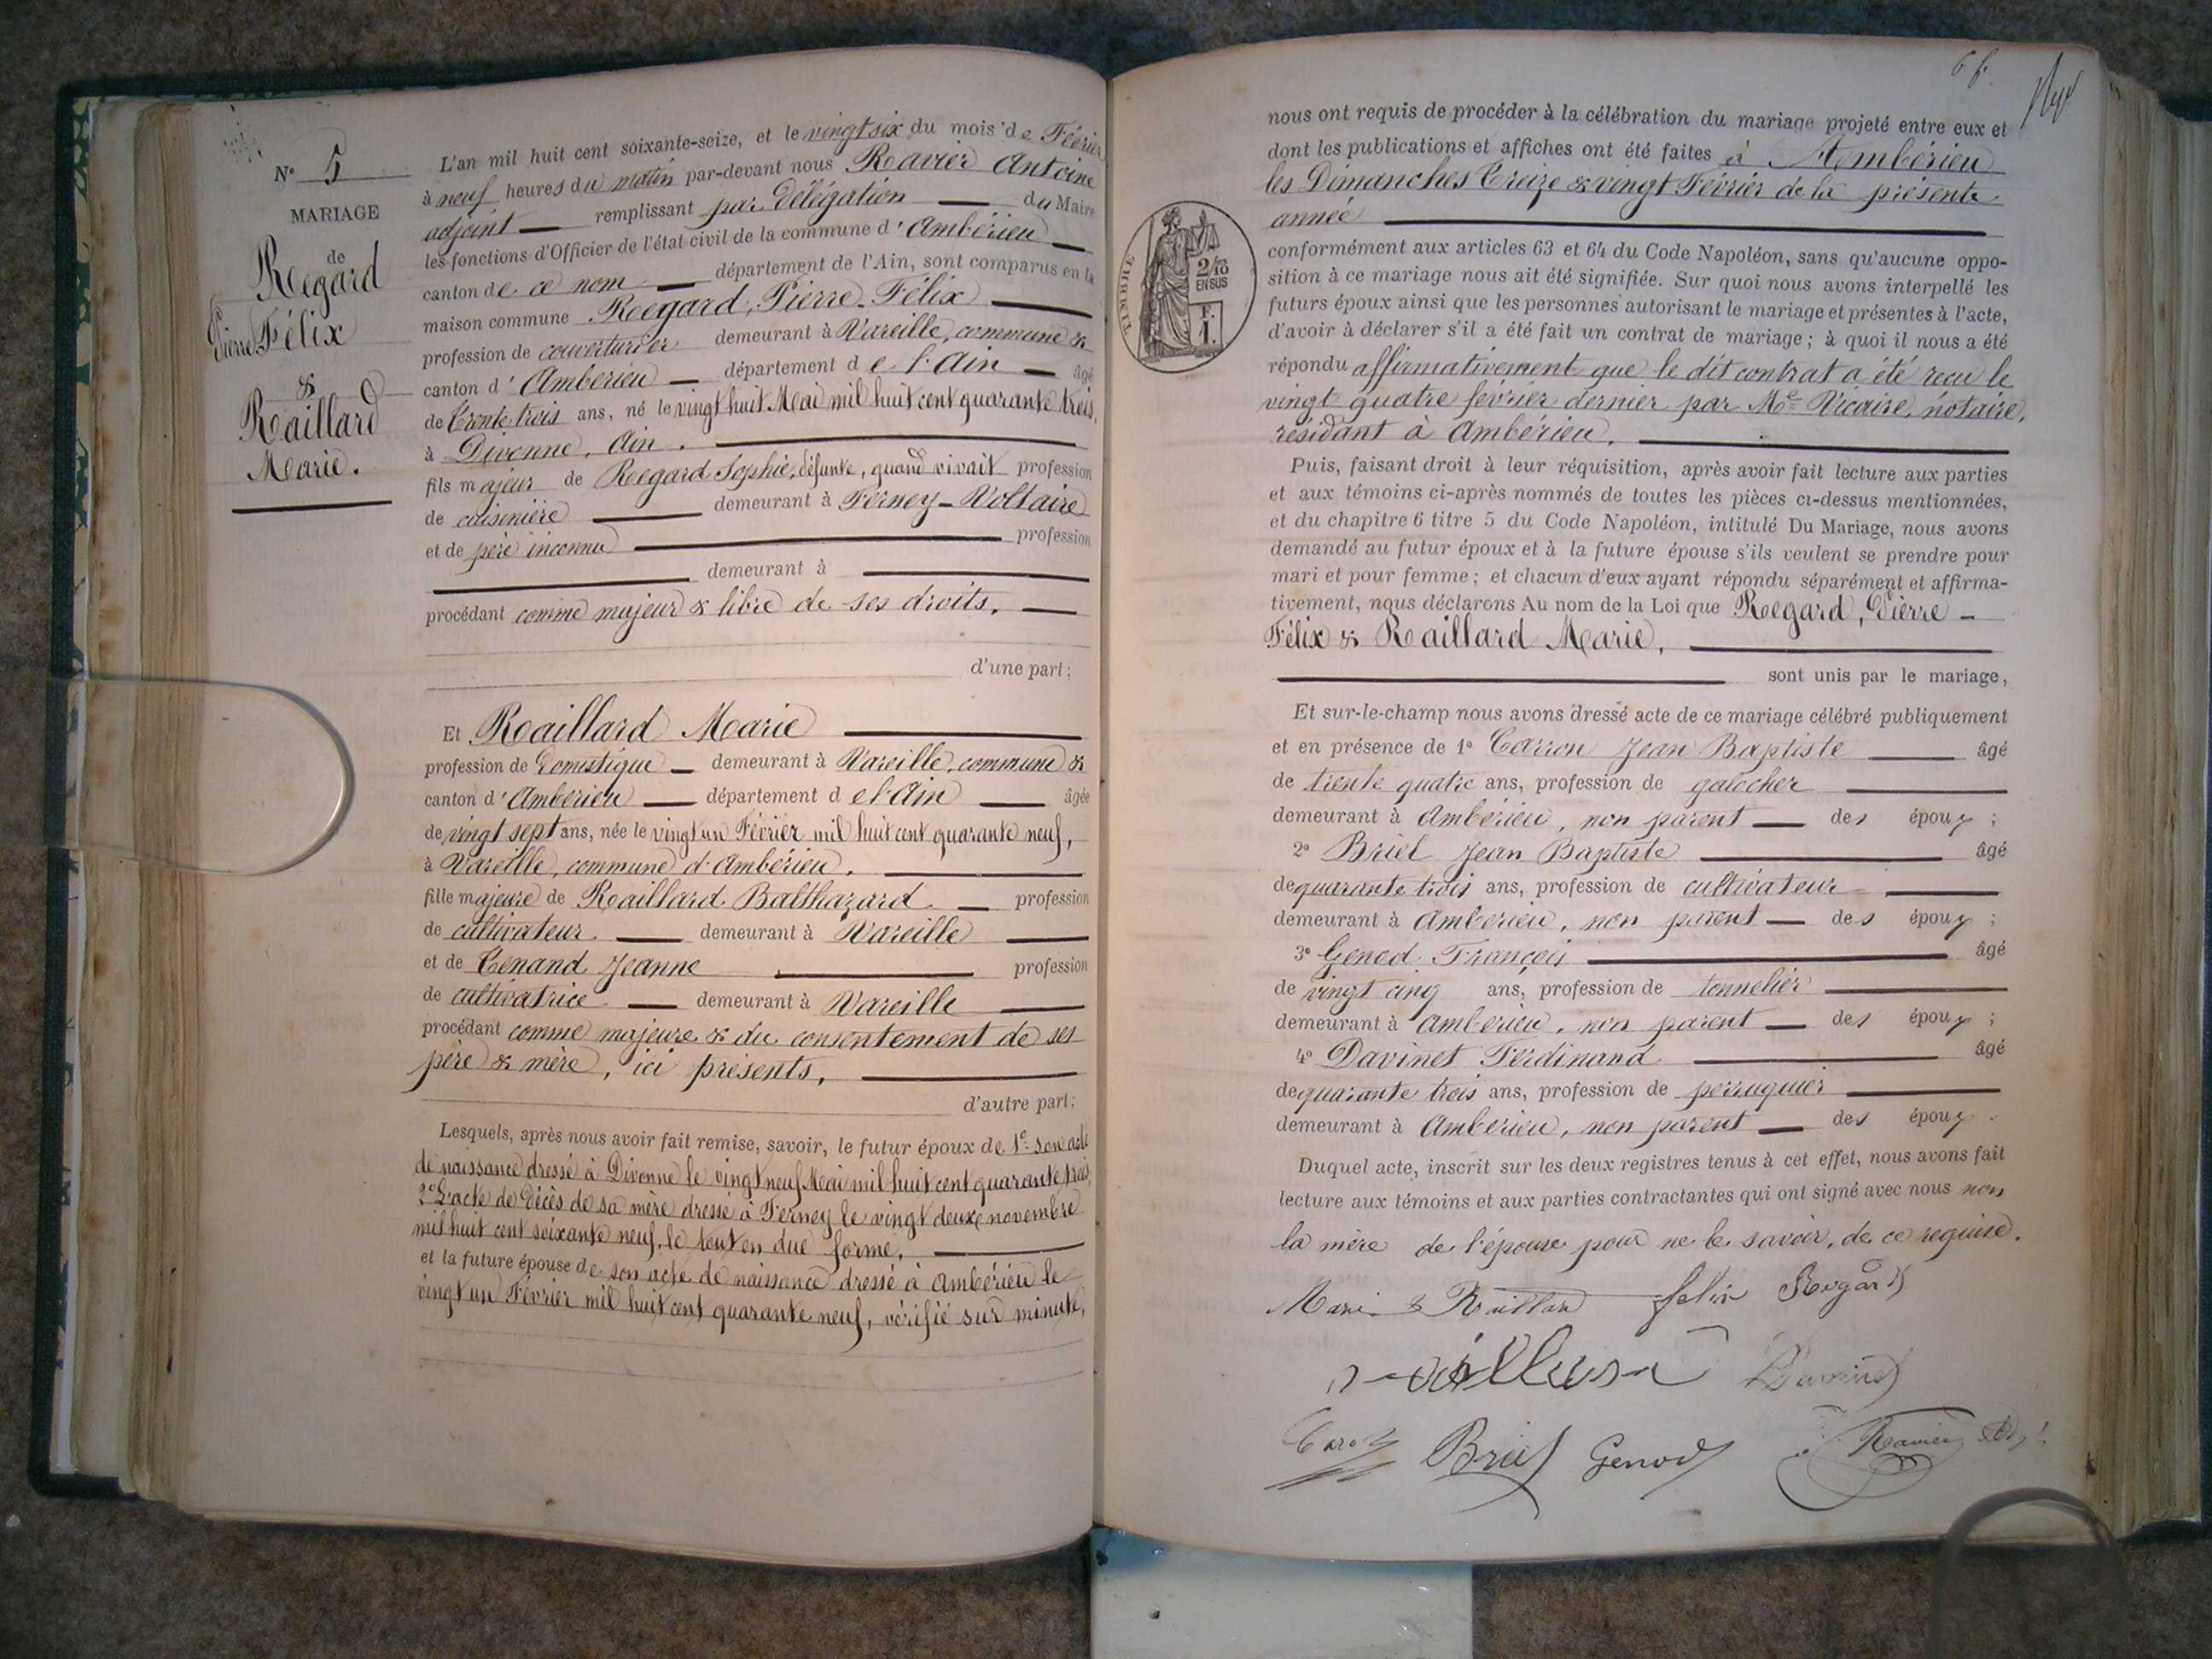 N° 5
MARIAGE
de
Regard
Pierre Félix
&
Raillard
Marie.
L'an mil huit cent soixante-seize, et le vingt six du mois de Février
à neuf heures du matin par-devant nous Ravier Antoine
adjoint remplissant par délégation du Maire
les fonctions d'Officier de l'état civil de la commune d'Ambérieu
canton de ce nom département de l'Ain, sont comparus en la
maison commune Regard, Pierre-Félix
profession de couverturier demeurant à Vareille, commune &
canton d'Ambérieu département de l'Ain âgé
de trente trois ans, né le vingt huit Mai mil huit cent quarante trois,
à Divonne, Ain.
fils majeur de Regard Sophie, défunte, quand vivait profession
de cuisinière demeurant à Ferney-Voltaire
et de père inconnu profession
demeurant à
procédant comme majeur & libre de ses droits.
d'une part;
Et Raillard Marie
profession de domestique demeurant à Vareille, commune &
canton d'Ambérieu département de l'Ain âgée
de vingt sept ans, née le vingt un Février mil huit cent quarante neuf,
à Vareille, commune d'Ambérieu.
fille majeure de Raillard Balthazard profession
de cultivateur demeurant à Vareille
et de Tenand Jeanne profession
de cultivatrice demeurant à Vareille
procédant comme majeure & du consentement de ses
père & mère, ici présents,
d'autre part;
Lesquels, après nous avoir fait remise, savoir, le futur époux de 1° son acte
de naissance dressé à Divonne le vingt neuf Mai mil huit cent quarante trois,
2° L'acte de décès de sa mère dressé à Ferney le vingt deux novembre
mil huit cent soixante neuf, le tout en due forme,
et la future épouse de son acte de naissance dressé à Ambérieu le
vingt un Février mil huit cent quarante neuf, vérifié sur minute,
nous ont requis de procéder à la célébration du mariage projeté entre eux et
dont les publications et affiches ont été faites à Ambérieu
les Dimanches treize & vingt Février de la présente
année
TIMBRE
2/10
EN SUS
F.
1.
conformément aux articles 63 et 64 du Code Napoléon, sans qu'aucune oppo-
sition à ce mariage nous ait été signifiée. Sur quoi nous avons interpellé les
futurs époux ainsi que les personnes autorisant le mariage et présentes à l'acte,
d'avoir à déclarer s'il a été fait un contrat de mariage; à quoi il nous a été
répondu affirmativement que le dit contrat a été reçu le
vingt quatre février dernier par Me Vicaire, notaire,
résidant à Ambérieu.
Puis, faisant droit à leur réquisition, après avoir fait lecture aux parties
et aux témoins ci-après nommés de toutes les pièces ci-dessus mentionnées,
et du chapitre 6 titre 5 du Code Napoléon, intitulé Du Mariage, nous avons
demandé au futur époux et à la future épouse s'ils veulent se prendre pour
mari et pour femme; et chacun d'eux ayant répondu séparément et affirma-
tivement, nous déclarons Au nom de la Loi que Regard, Pierre-
Félix & Raillard Marie,
sont unis par le mariage,
Et sur-le-champ nous avons dressé acte de ce mariage célébré publiquement
et en présence de 1° Carron Jean Baptiste âgé
de trente quatre ans, profession de galocher
demeurant à Ambérieu, non parent des époux;
2° Briel Jean Baptiste âgé
de quarante trois ans, profession de cultivateur
demeurant à Ambérieu, non parent des époux;
3° Genod François âgé
de vingt cinq ans, profession de tonnelier
demeurant à Ambérieu, non parent des époux;
4° Davinet Ferdinand âgé
de quarante trois ans, profession de perruquier
demeurant à Ambérieu, non parent des époux.
Duquel acte, inscrit sur les deux registres tenus à cet effet, nous avons fait
lecture aux témoins et aux parties contractantes qui ont signé avec nous non
la mère de l'épouse pour ne le savoir, de ce requise.
Marie Raillard felix Regard
Davinet
Briel Genod Ravier